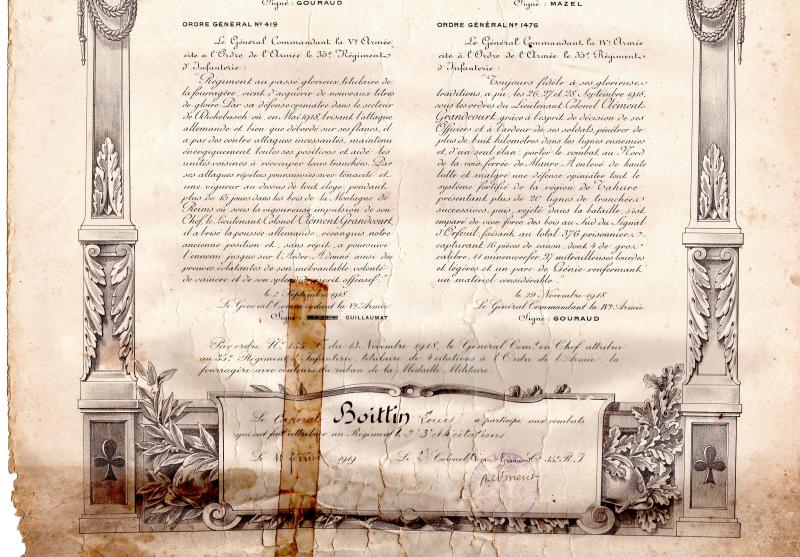 Signé : GOURAUD
ORDRE GÉNÉRAL Nº 419
Le Général Commandant la Vᵉ Armée,
cite à l'Ordre de l'Armée le 35ᵉ Régiment
d'Infanterie :
"Régiment au passé glorieux, titulaire de
la fourragère, vient d'acquérir de nouveaux titres
de gloire. Par sa défense opiniâtre dans le secteur
de Dickebusch où, en Mai 1918, brisant l'attaque
allemande et bien que débordé sur ses flancs, il
a, par des contre attaques incessantes, maintenu
énergiquement toutes ses positions et aidé les
unités voisines à réoccuper leurs tranchées. Par
ses attaques répétées poursuivies avec ténacité et
une vigueur au dessus de tout éloge, pendant
plus de 15 jours dans les bois de la Montagne de
Reims où sous la vigoureuse impulsion de son
Chef, le Lieutenant Colonel Clément-Grandcourt,
il a brisé la poussée allemande, reconquis notre
ancienne position et, sans répit, a poursuivi
l'ennemi jusque sur l'Ardre. A donné ainsi des
preuves éclatantes de son inébranlable volonté
de vaincre et de son esprit offensif."
le 2 Septembre 1918
Le Général Commandant la Vᵉ Armée
Signé : GUILLAUMAT
Signé : MAZEL
ORDRE GÉNÉRAL Nº 1476
Le Général Commandant la IVᵉ Armée
cite à l'Ordre de l'Armée le 35ᵉ Régiment
d'Infanterie :
"Toujours fidèle à ses glorieuses
traditions, a pu, les 26, 27 et 28 Septembre 1918,
sous les ordres du Lieutenant Colonel Clément-
Grandcourt, grâce à l'esprit de décision de ses
Officiers et à l'ardeur de ses soldats, pénétrer de
plus de huit kilomètres dans les lignes ennemies
et, d'un seul élan, porter le combat au Nord
de la voie ferrée de Manre. A enlevé de haute
lutte et malgré une défense opiniâtre tout le
système fortifié de la région de Tahure
présentant plus de 20 lignes de tranchées
successives, puis, rejeté dans la bataille, s'est
emparé de vive force des bois au Sud du Signal
d'Orfeuil faisant au total 376 prisonniers,
capturant 16 pièces de canon, dont 4 de gros
calibre, 11 minenwerfer, 97 mitrailleuses lourdes
et légères et un parc de Génie renfermant
un matériel considérable."
le 29 Novembre 1918
Le Général Commandant la IVᵉ Armée
Signé : GOURAUD
Par ordre Nº 145 F. du 13 Novembre 1918, le Général Comᵗ en Chef attribue
au 35ᵉ Régiment d'Infanterie, titulaire de 4 citations à l'Ordre de l'Armée, la
fourragère aux couleurs du ruban de la Médaille Militaire
Le Caporal Boittin Louis a participé aux combats
qui ont fait attribuer au Régiment le 2ᵉ 3ᵉ et 4 citations
Le février 1919 Le Lᵗ Colonel 35ᵉ R.I
A. Clément